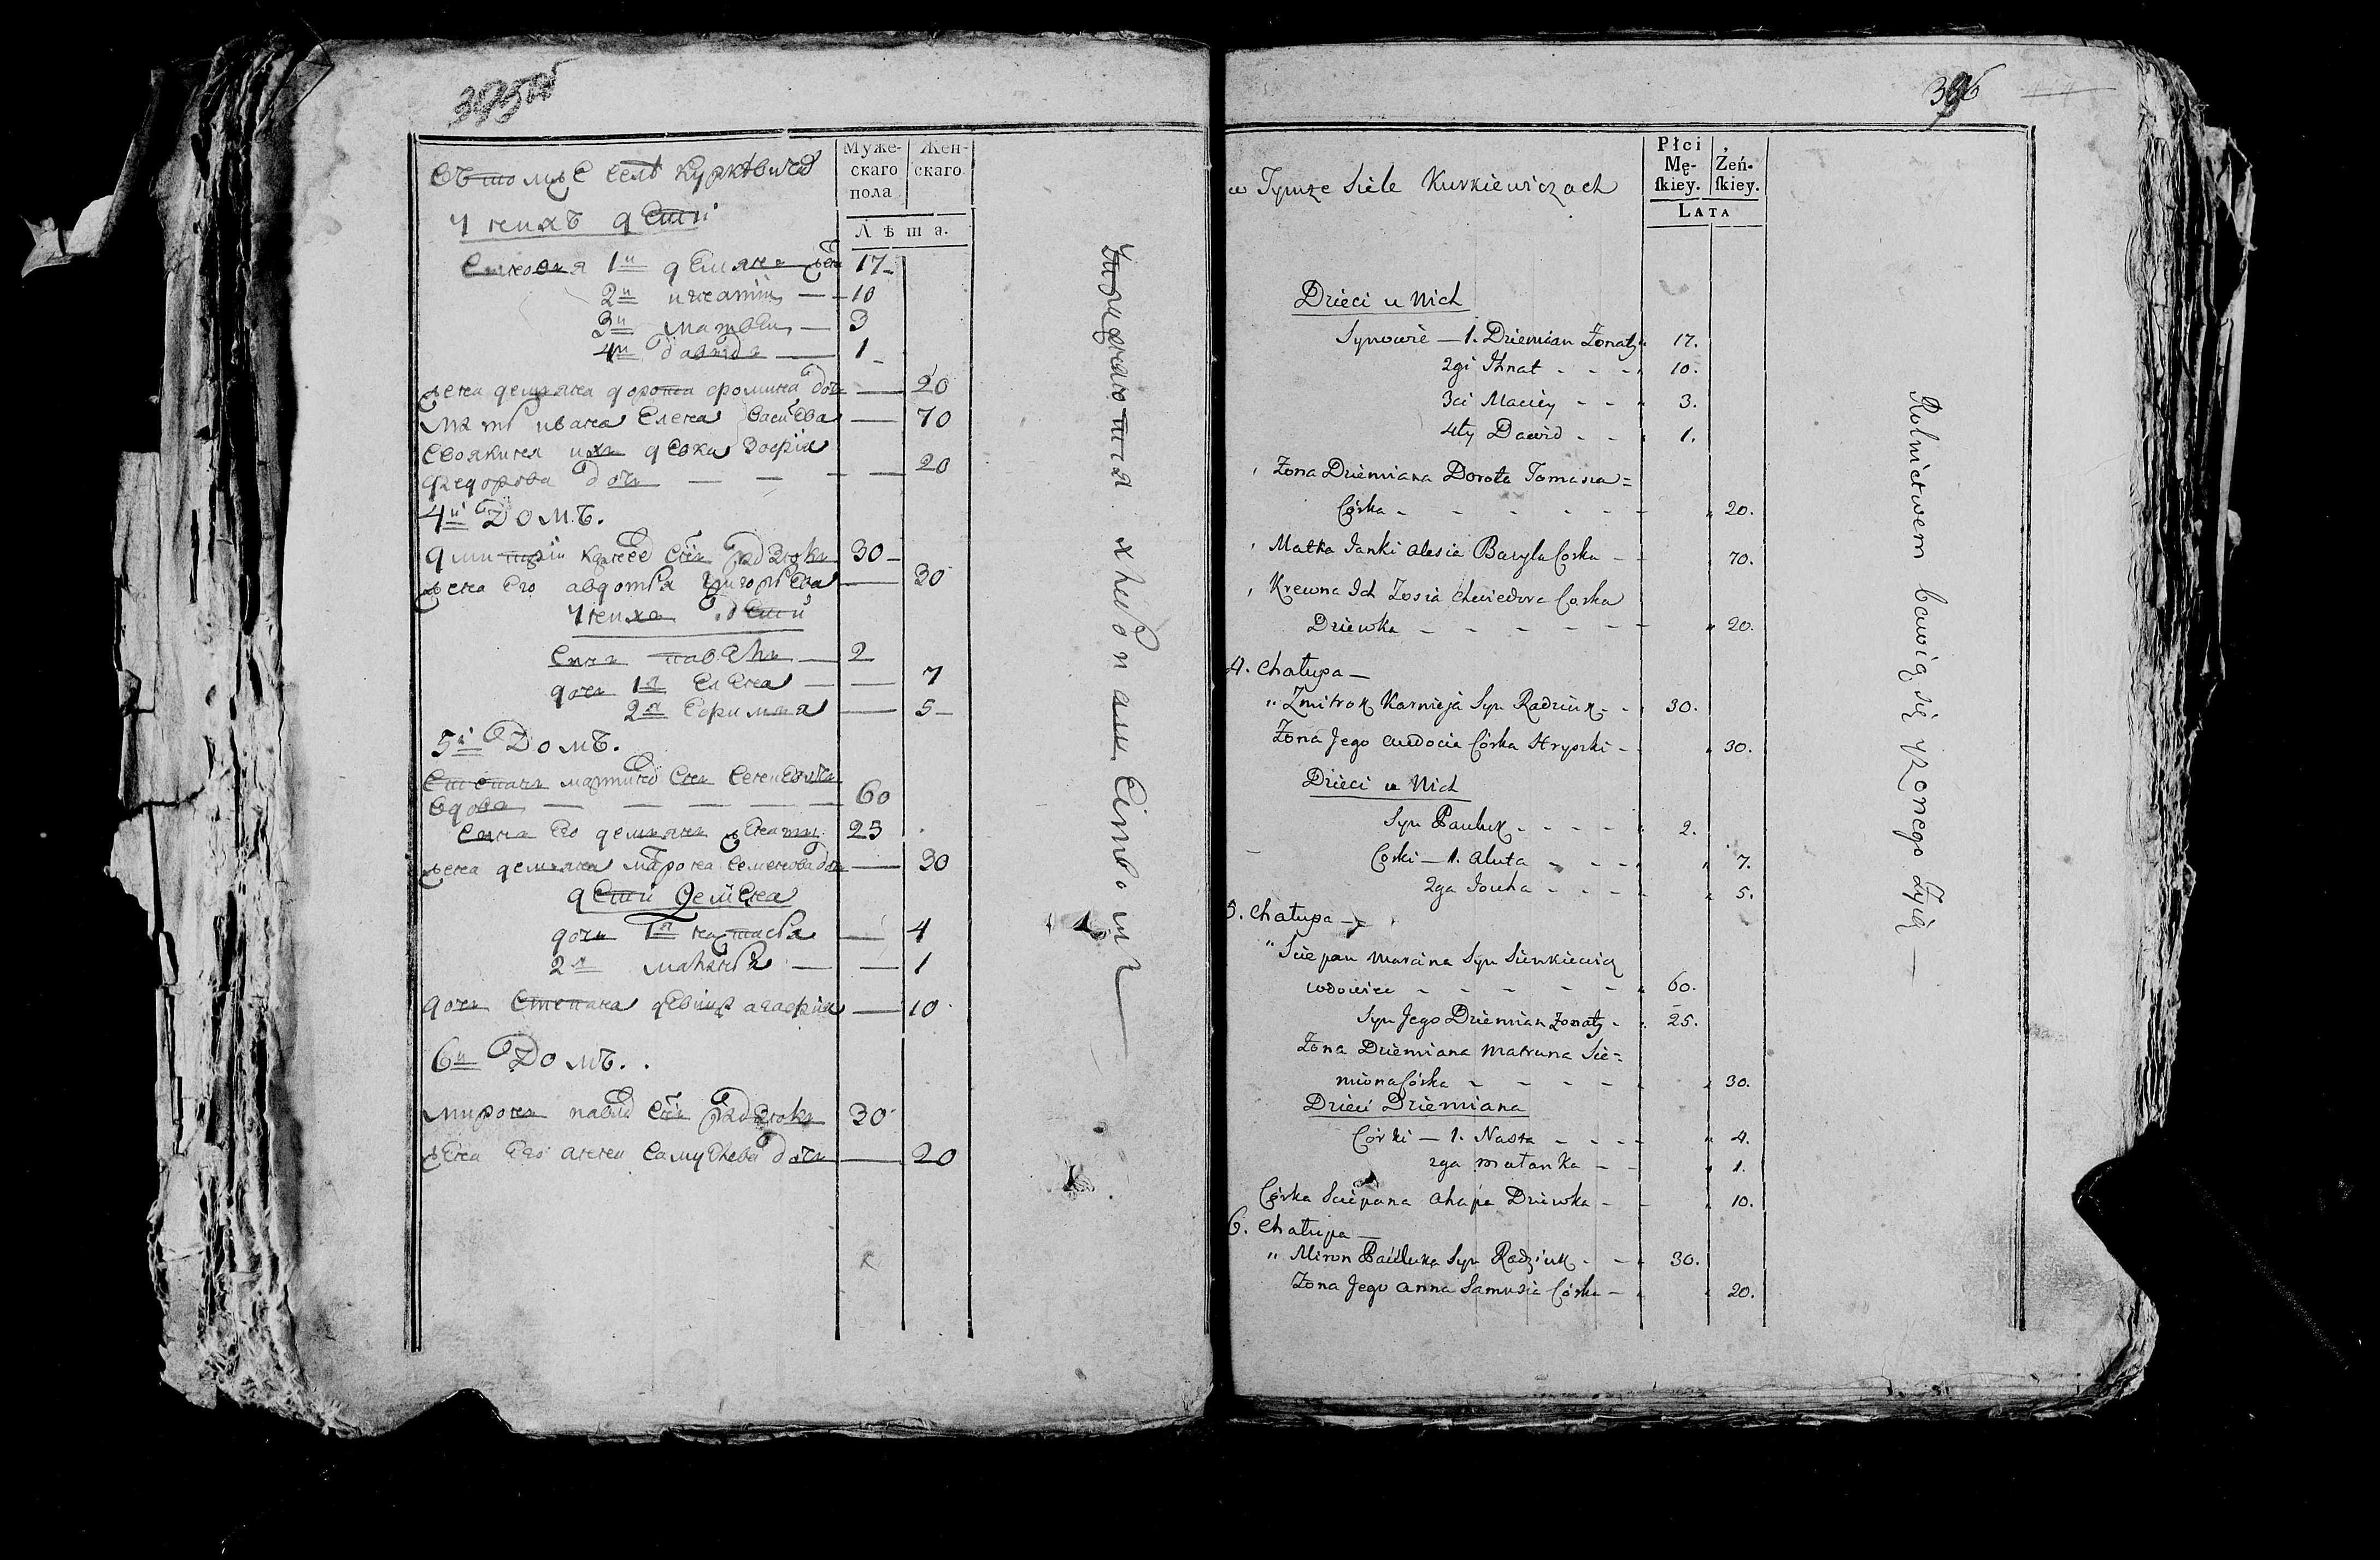 395об
Муже-
скаго
пола
Жен-
скаго
Лѣта.
Въ томже селѣ Куркѣвичах
У нихъ дети
Сыновя 1й демянъ жен 17
2й игнатий — 10
3й матвей — 3
4й давидъ — 1
жена демяна дорота фомина дочь — 20
мать ивана Елена — 70
своякиня ихъ девка Зофия
федорова дочь — — — 20
4й Домъ.
дмитрий сынъ радзюкъ 30
жена его авдотья григорьева — 30
У нихъ дети
Сынъ павелъ — 2
дочь 1я Елена — 7
2я Ефимия — 5
5й Домъ.
Степанъ мартина сынъ Сенкевичъ
вдовъ — — — — — 60
Сынъ его демянъ женатый 25
жена демяна матрона семенова дочь — 30
дети Демяна
дочь 1я настасья — 4
2я маланья — 1
дочь Степана девица агафия — 10
6й Домъ.
миронъ павла сынъ радзюкъ 30
жена его анна самуйлева дочь — 20
Упражняются хлебопашеством
396
Płci
Mę-
skiey.
Żeń-
skiey.
LATA
w Tymże Siele Kurkiewiczach
Dzieci u Nich
Synowie — 1. Dziemian Żonaty 17.
2gi Ihnat - - - 10.
3ci Maciey - - 3.
4ty Dawid - - 1.
Żona Dziemiana Dorota Tomasza =
Córka - - - - - - 20.
Matka Janki Alesia Baryla Corka - 70.
Krewna Ich Zosia Chwiedora Corka
Dziewka - - - - - - 20.
4. Chałupa —
" Zmitrok Karnieja Syn Radziuk - - 30.
Żona Jego Awdocia Córka Hryszki - 30.
Dzieci u Nich
Syn Pauluk - - - - 2.
Corki — 1. Aluta - - - 7.
2ga Jouha - - - - 5.
5. Chałupa —
" Sciepan Marcina Syn Sienkiewicz
wdowiec - - - - - - 60.
Syn Jego Dziemian Żonaty - 25.
Żona Dziemiana Matruna Sie=
miona Córka - - - - - 30.
Dzieci Dziemiana
Córki — 1. Nasta - - - - 4.
2ga Małanka - - 1.
Córka Sciepana Ahapa Dziewka - - 10.
6. Chałupa —
" Miron Pauluka Syn Radziuk - - 30.
Żona Jego Anna Samusia Córka - 20.
Rolnictwem bawią się y z onego żyią —